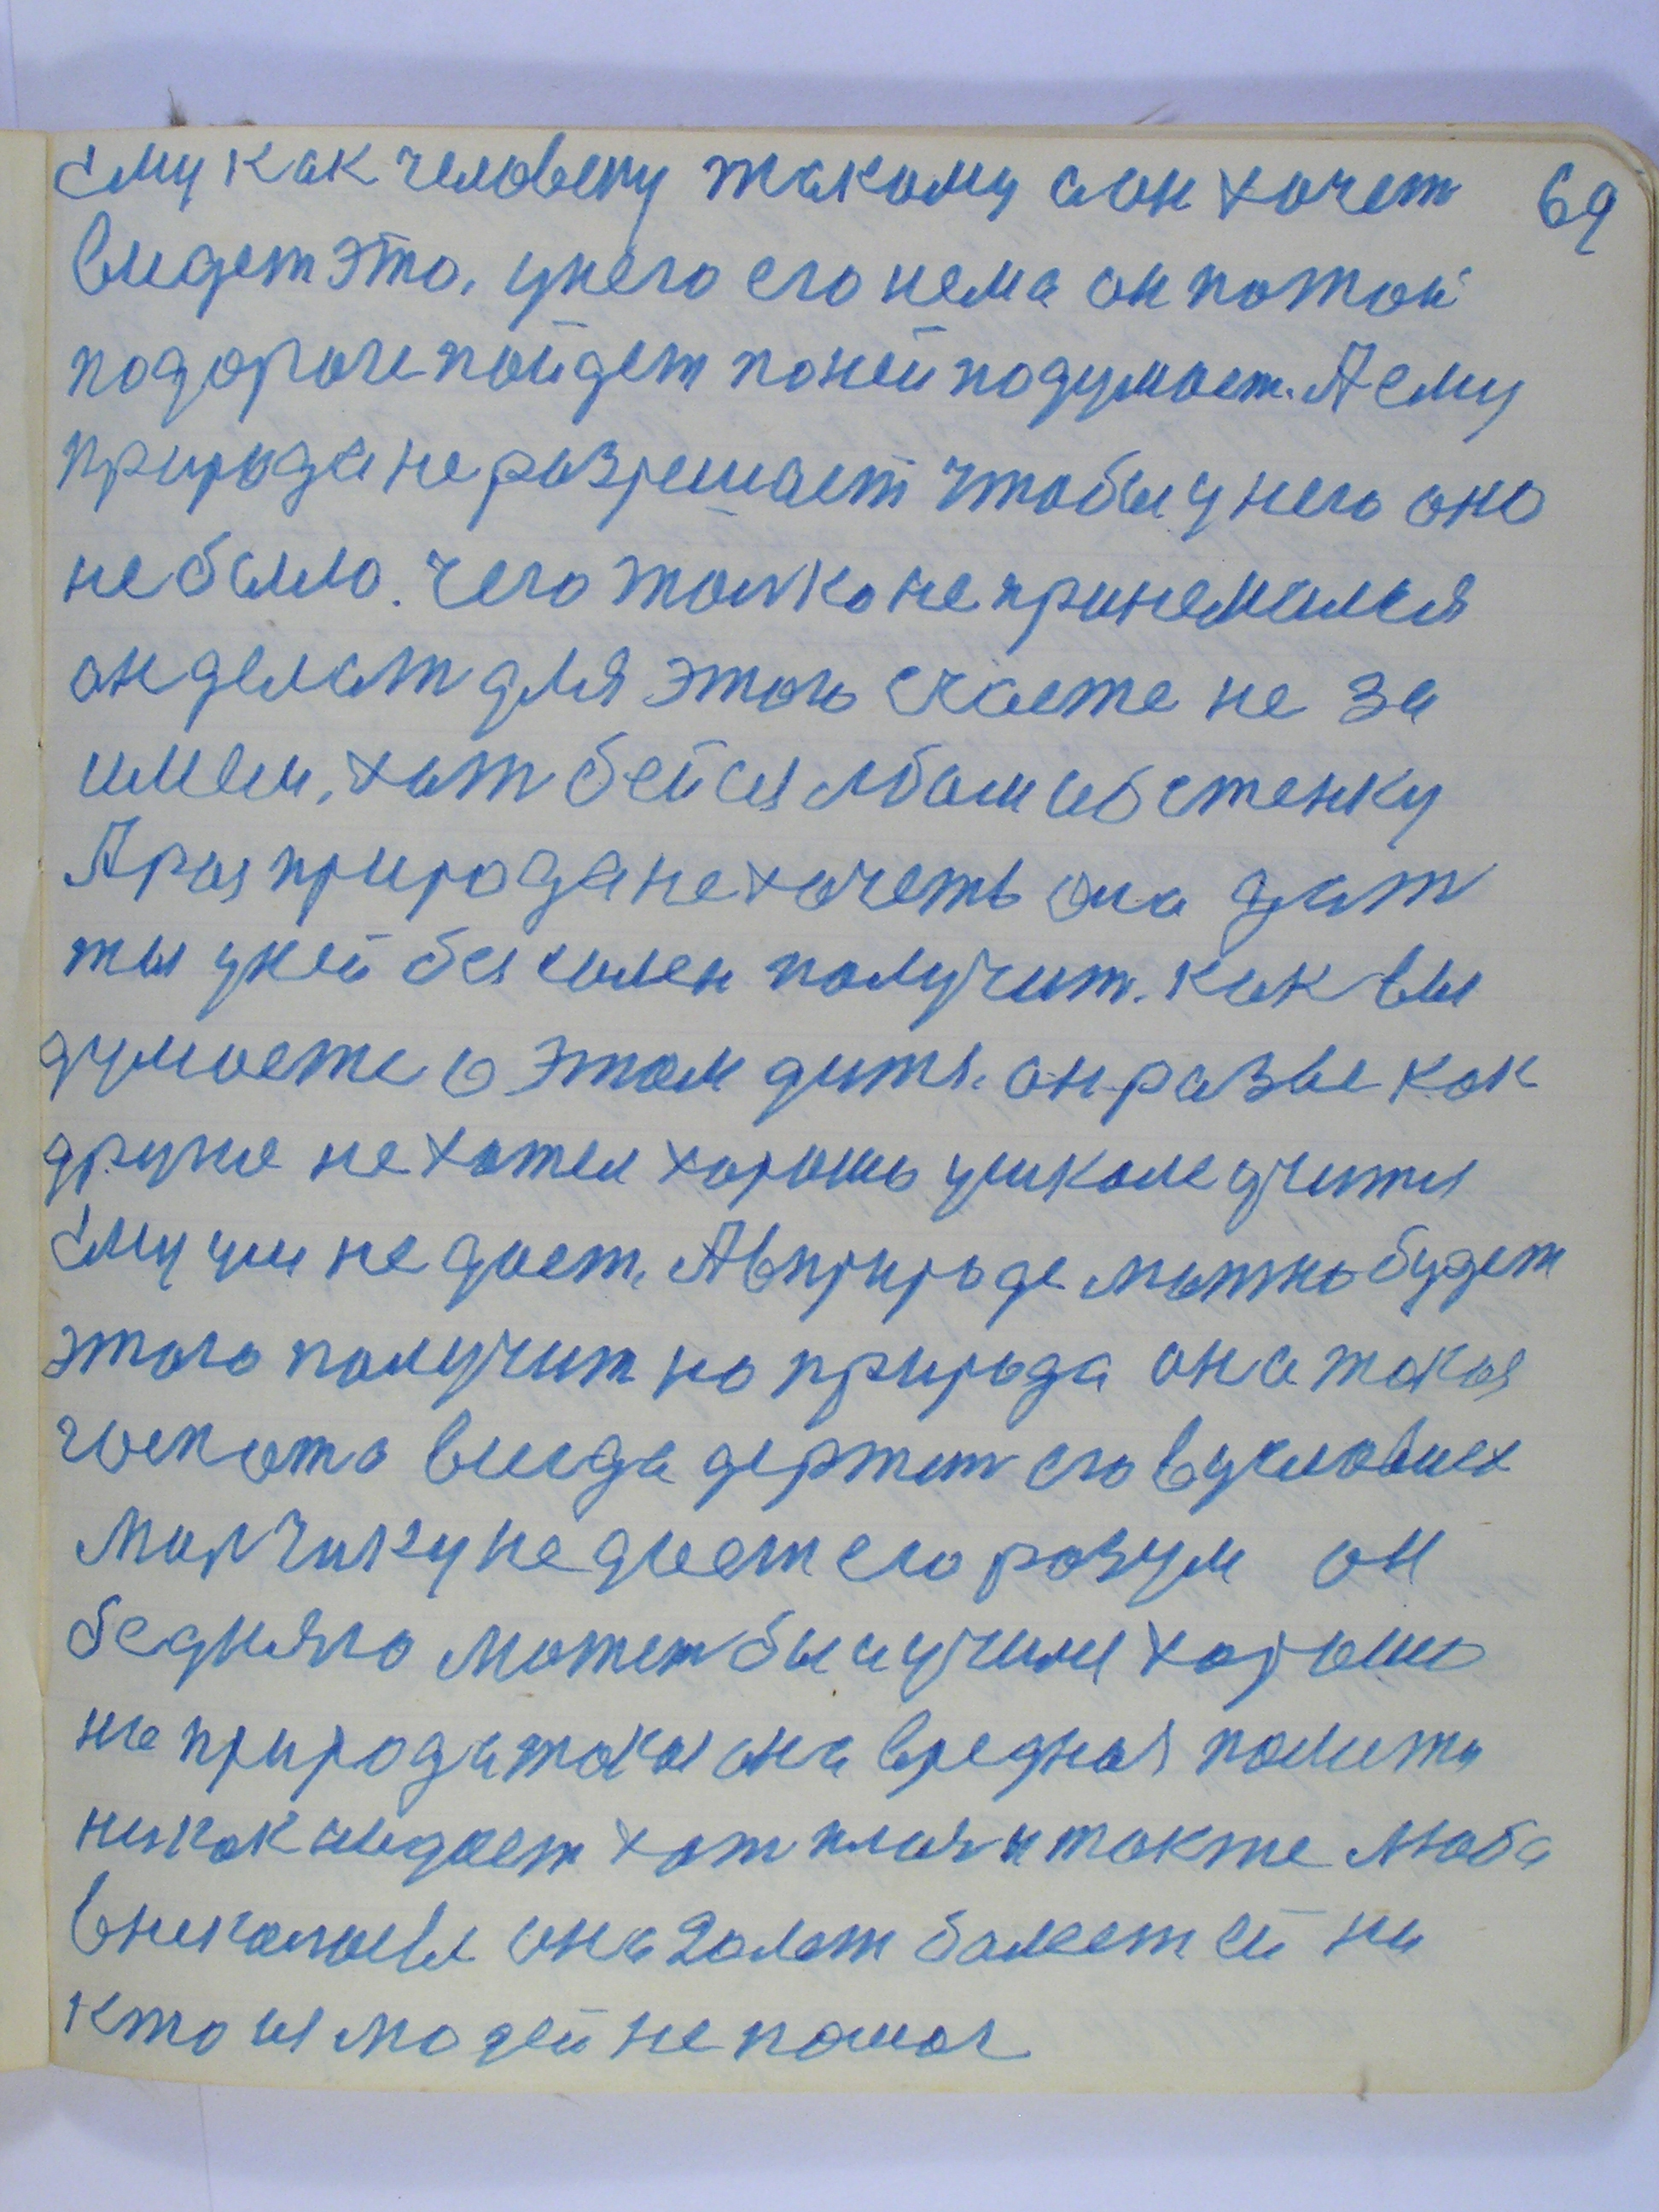 ему как человеку такому а он хочет 69
видет это, у него его нема он по той
по дороге пойдет по ней подумает. А ему
природа не разрешает чтобы у него оно
не было. чего толко не принемался
он делат для этого счасте не за
имеи, хот бейся лбом об стенку
А раз природа не хочеть она дат
ты у ней бессилен получит. как вы
думаете о этом дитя. он разве как
другие не хотел хорошо у школе учится
ему ум не дает. А в природе можно будет
этого получит но природа она такая
держит его в условиех
малчику не дает его розум он
бедняго может бы и учился хорошо
не природа такая она вредная
никак не дает хот плач и также Люба
в николаеве она 20 лет болеет ей ни
кто из людей не помог